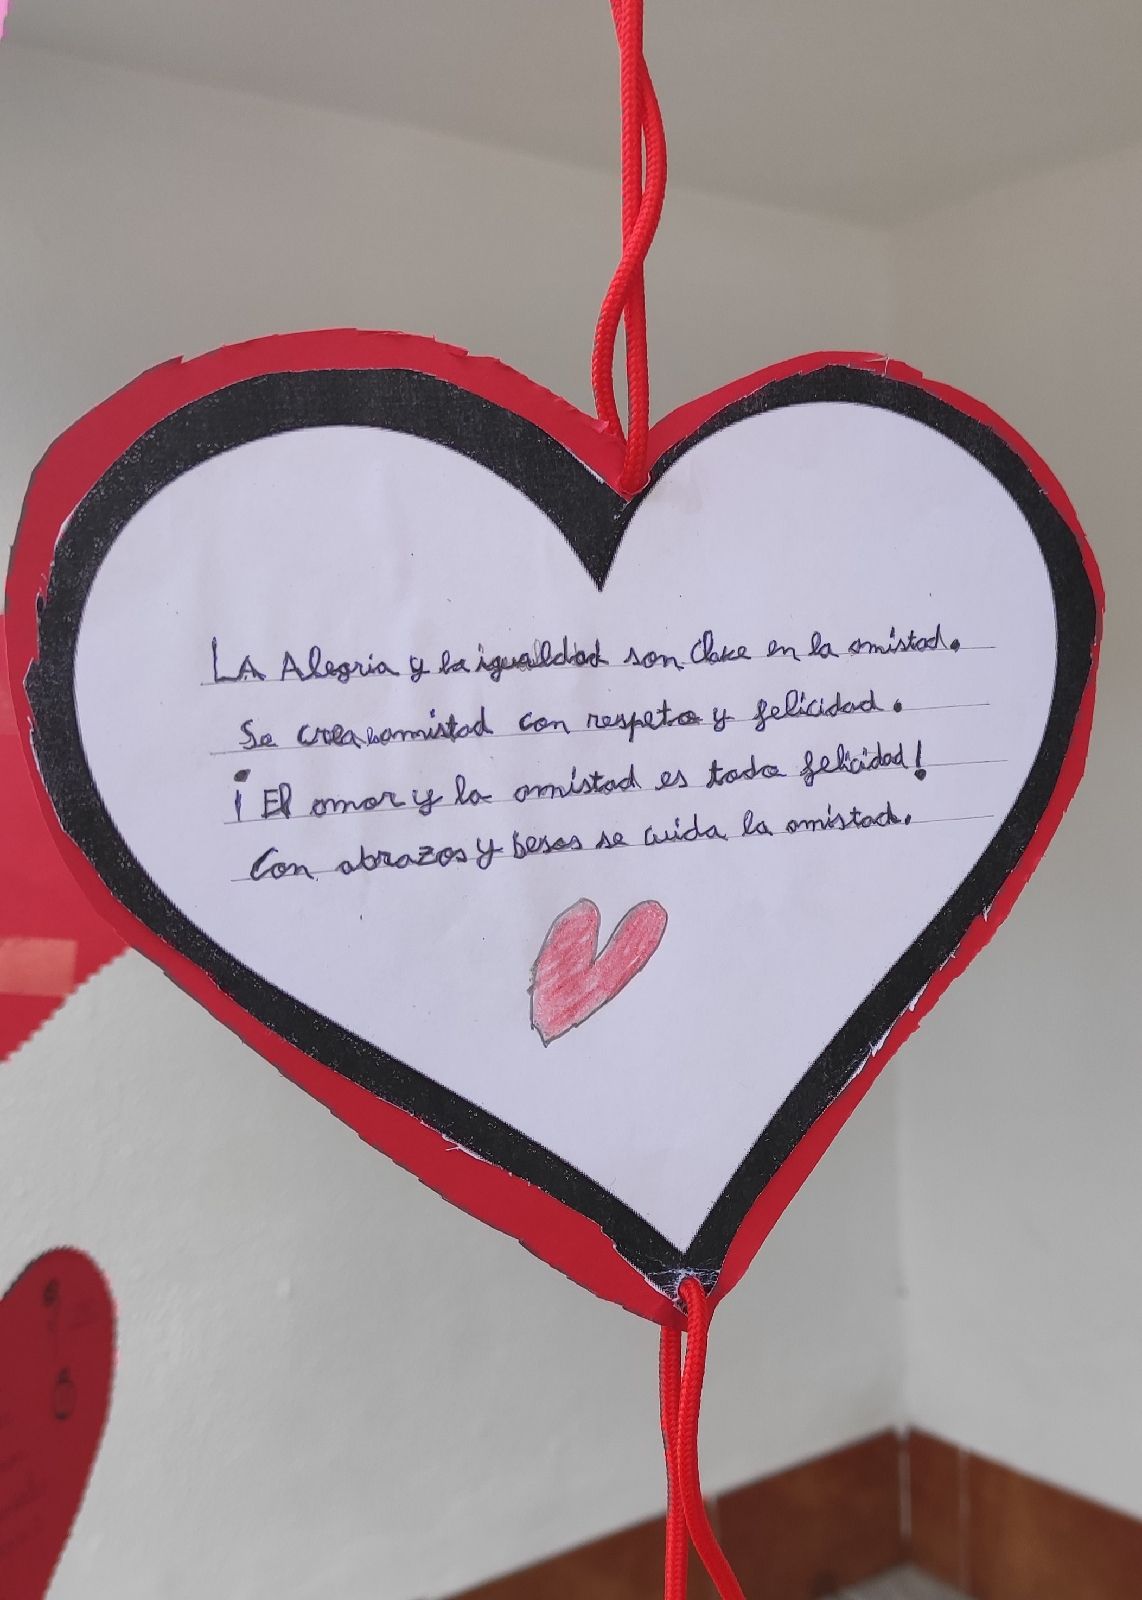 LA Alegria y la igualdad son clave en la amistad.
Se crea la amistad con respeto y felicidad.
¡El amor y la amistad es toda felicidad!
Con abrazos y besos se cuida la amistad.